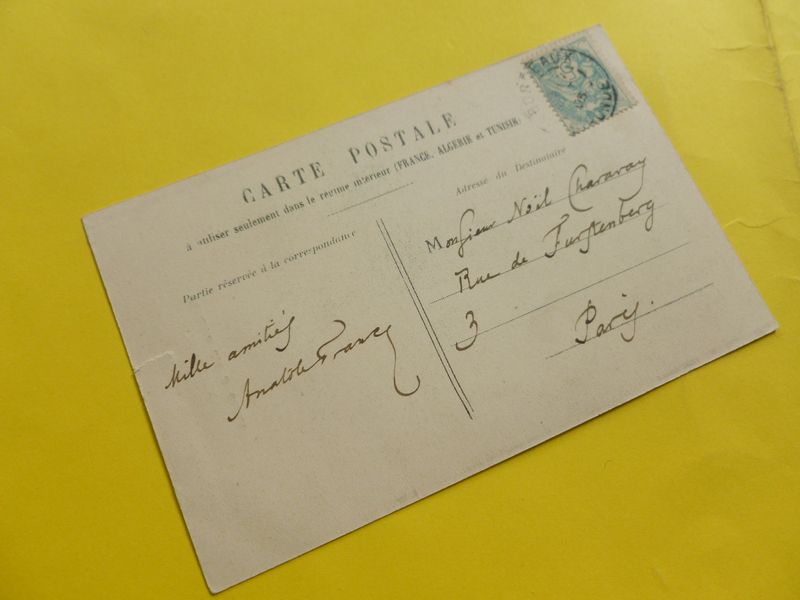 CARTE POSTALE
à utiliser seulement dans le régime intérieur (FRANCE, ALGERIE et TUNISIE)
Partie réservée à la correspondance
Mille amitiés
Anatole France
Adresse du Destinataire
Monsieur Noël Charavay
Rue de Furstenberg
3
Paris.